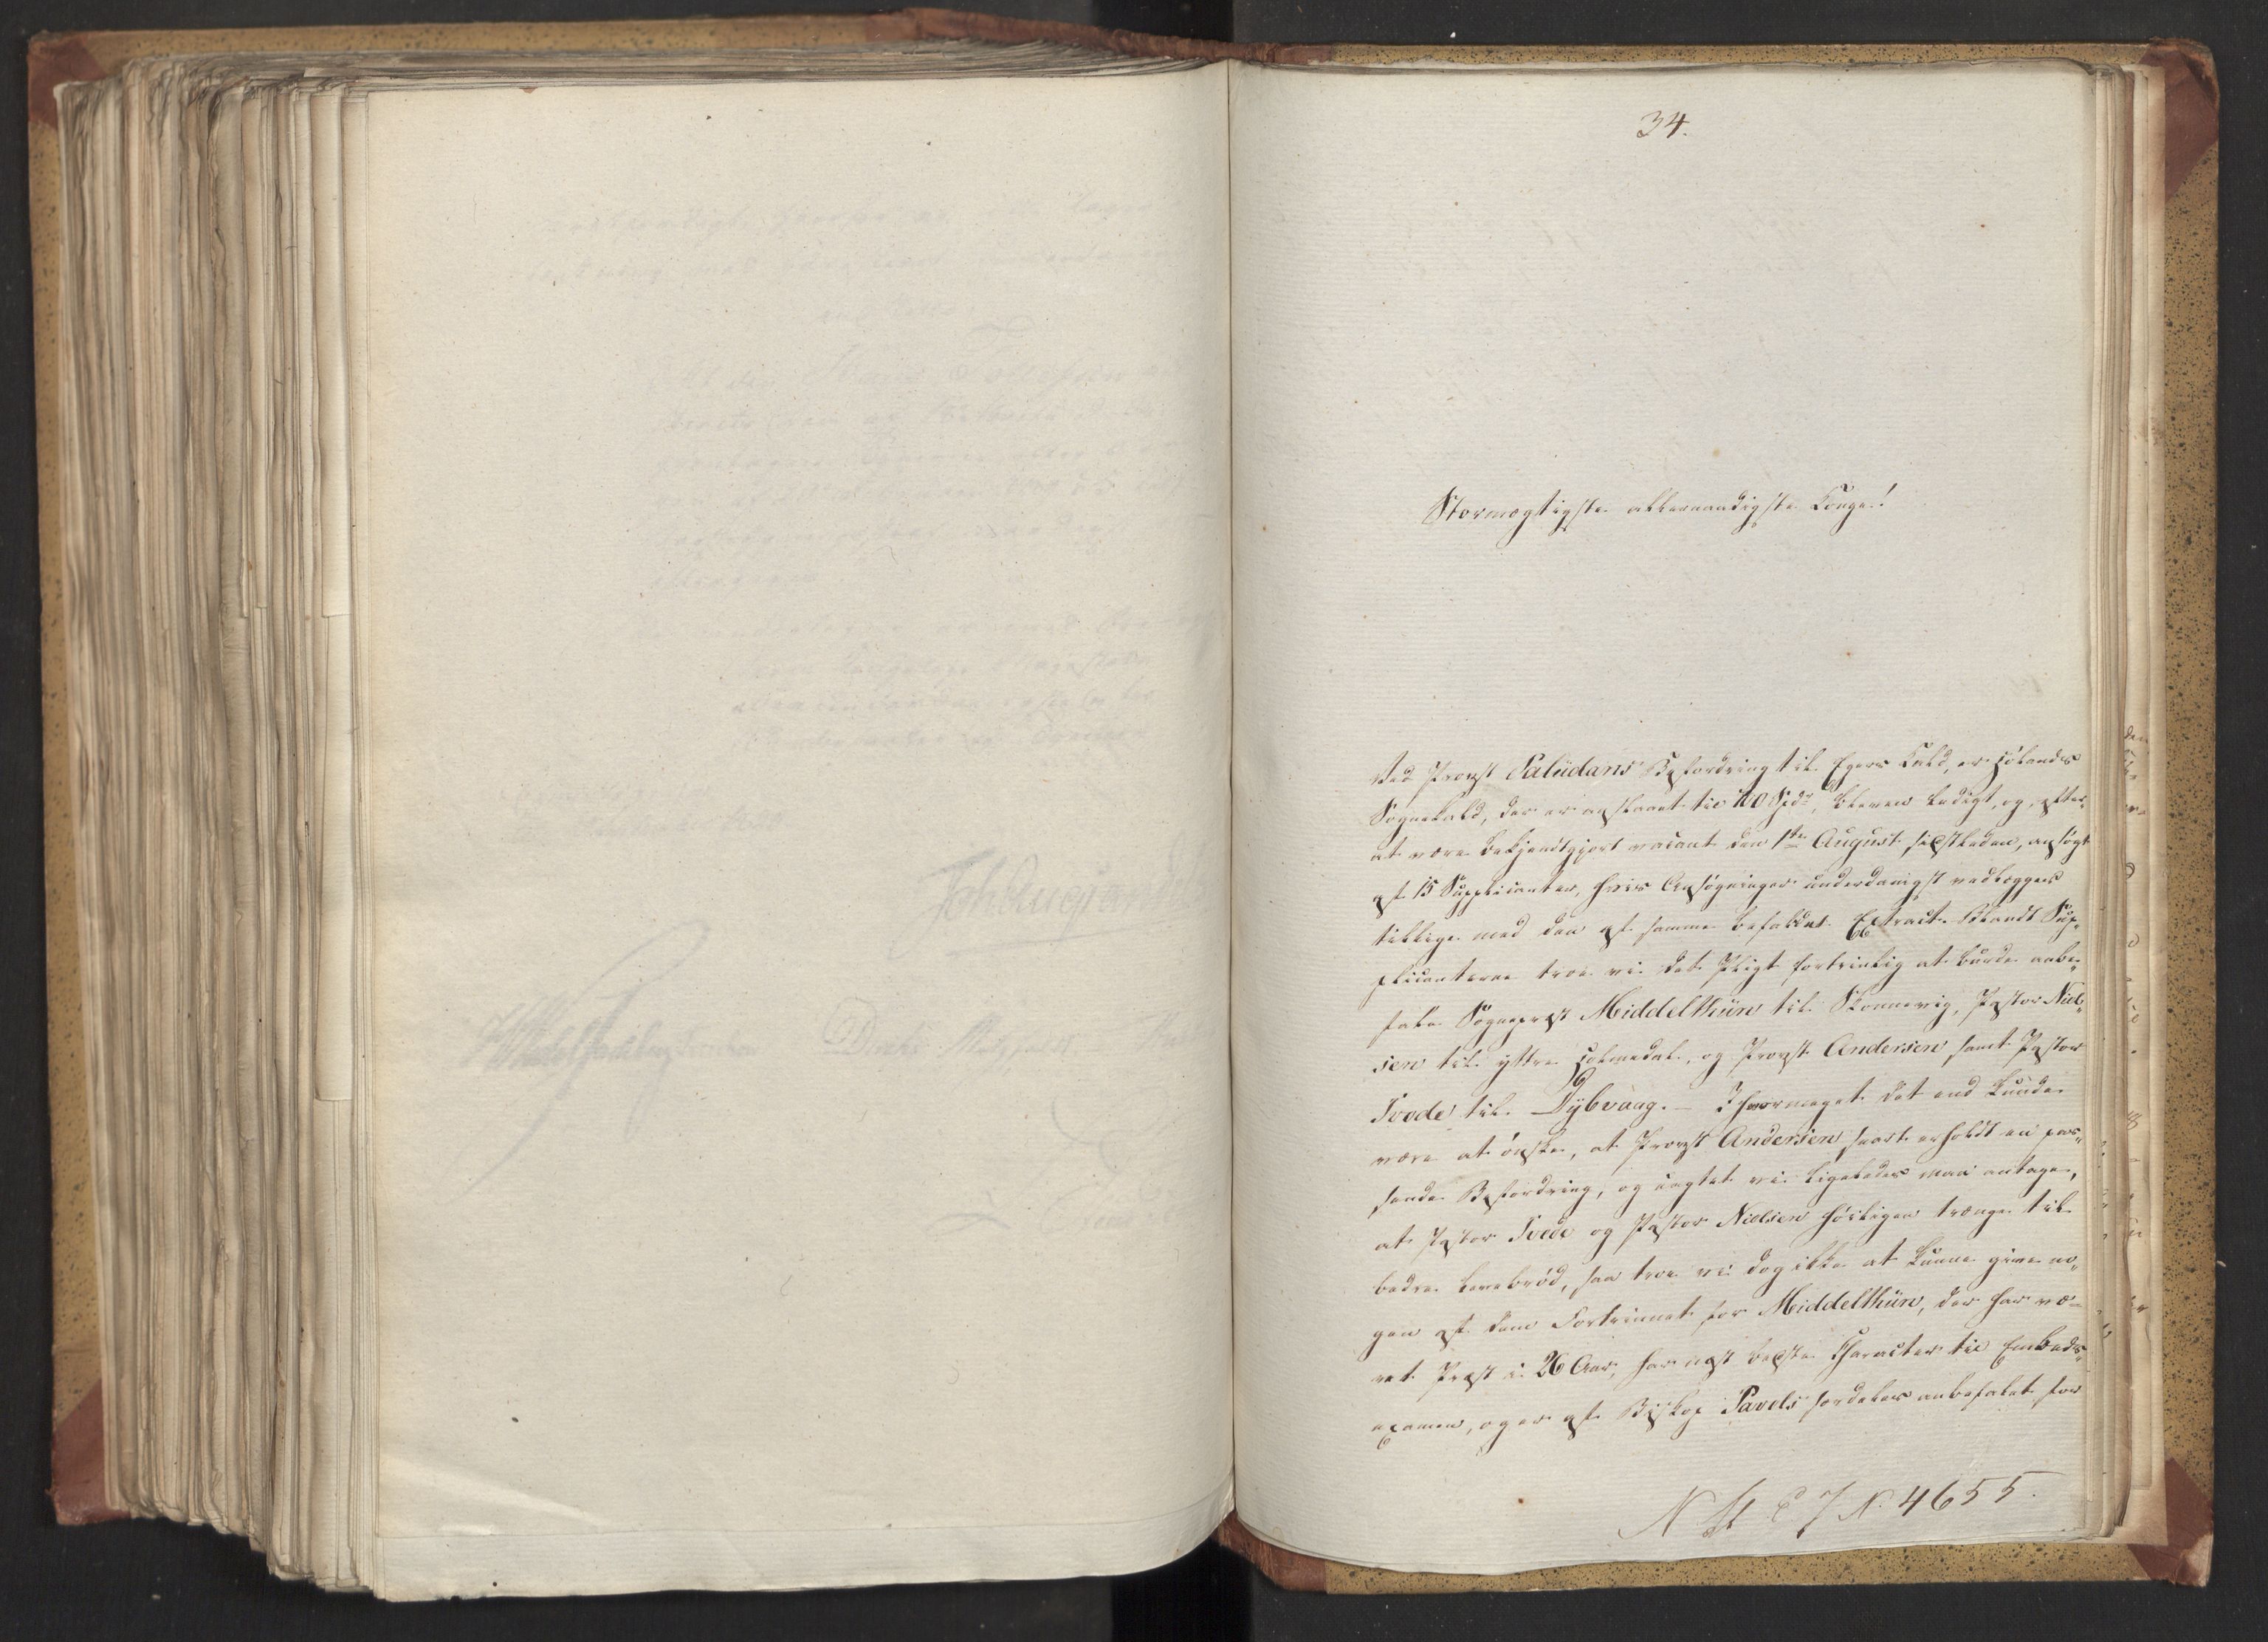 34.
Stormægtigste allernaadigste Konge!
Ved Provst Paludans Befordring til Egers Kald, er Hölands
Sognekald, der er anslaaet til 1100 Spdr, bleven ledigt, og, efter
at være bekjendtgjort vacant den 1ste August sidstleden, ansögt
af 15 Supplicanter, hvis Ansögninger underdanigst vedlægges
tillige med den af samme befalede Extract. Blandt Sup„
plicanterne troe vi det Pligt fortrinlig at burde anbe„
fale Sognepræst Middelthün til Skonnevig, Pastor Niel„
sen til yttre Holmedal, og Provst Andersen samt Pastor
Tvede til Dybvaag. – Ihvormeget det end kunde
være at önske, at Provst Andersen snart erholdt en pas„
sende Befordring, og uagtet vi ligeledes maa antage,
at Pastor Tvede og Pastor Nielsen höiligen trænge til
bedre Levebröd, saa troe vi dog ikke at kunne give no„
gen af dem Fortrinnet for Middelthün, der har væ„
ret Præst i 26 Aar, har næst bedste Character til Embeds„
examen, og er af Biskop Pavels fordelagtig anbefalet for
N. 4655.